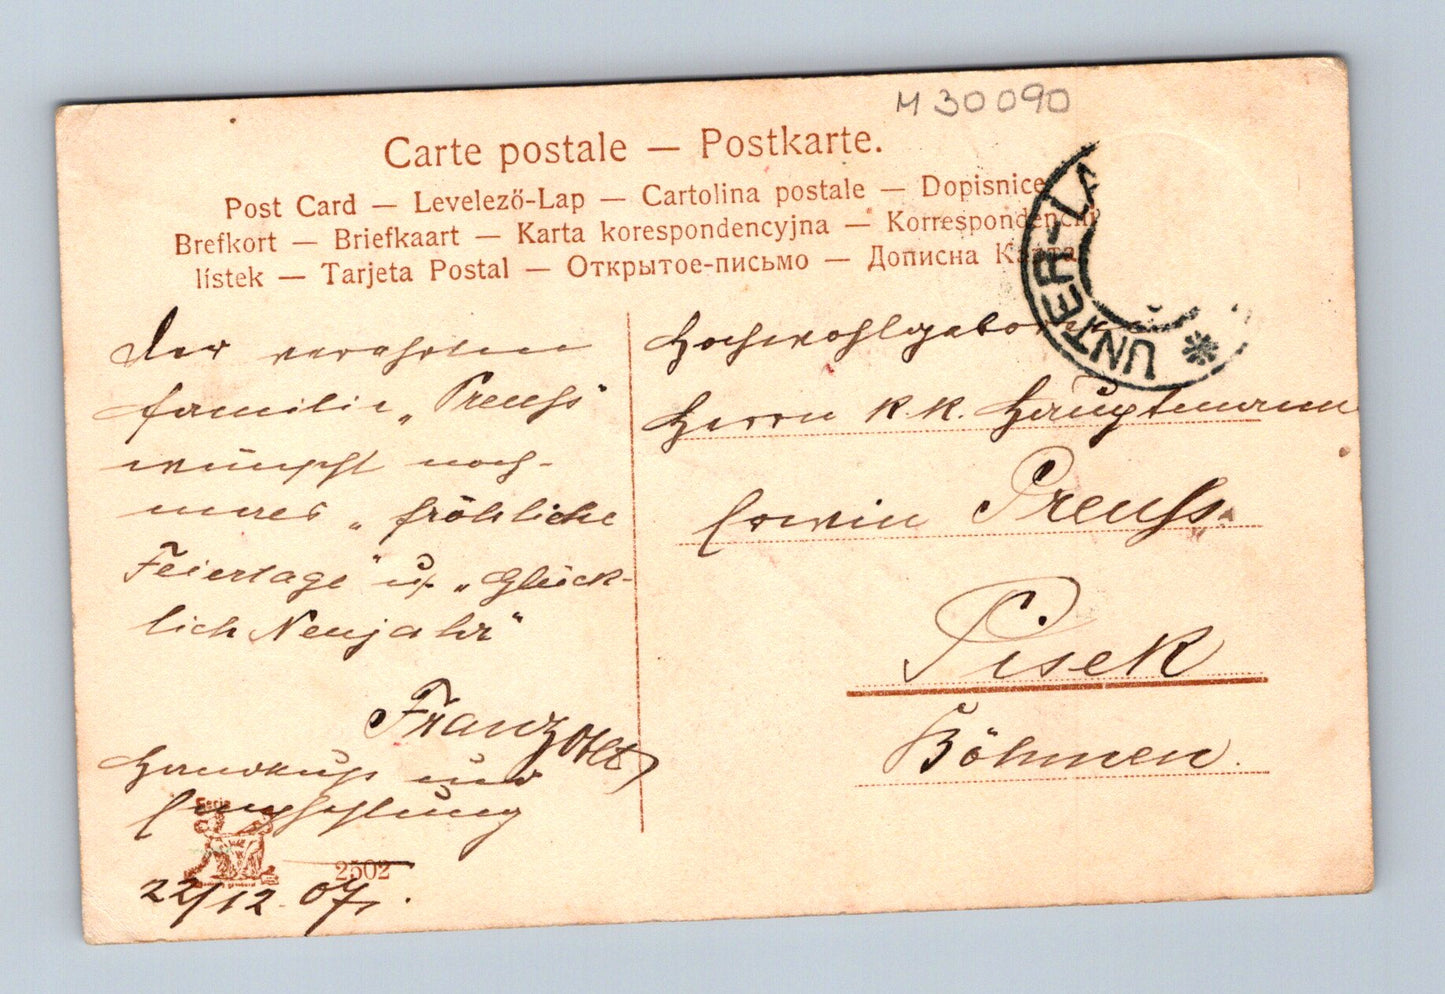 M 30090
Carte postale — Postkarte.
Post Card — Levelező-Lap — Cartolina postale — Dopisnice
Brefkort — Briefkaart — Karta korespondencyjna — Korrespondenční
lístek — Tarjeta Postal — Открытое-письмо — Дописна Карта
UNTER-LA
Der verehrten
Familie „Preuß"
wünscht noch-
mals „fröhliche
Feiertage" u. „Glück-
lich Neujahr"
Franz
Handkuß und
Empfehlung
22/12. 07.
Serie
2502
Hochwohlgeboren
Herrn K. K. Hauptmann
Erwin Preuß.
Pisek
Böhmen.